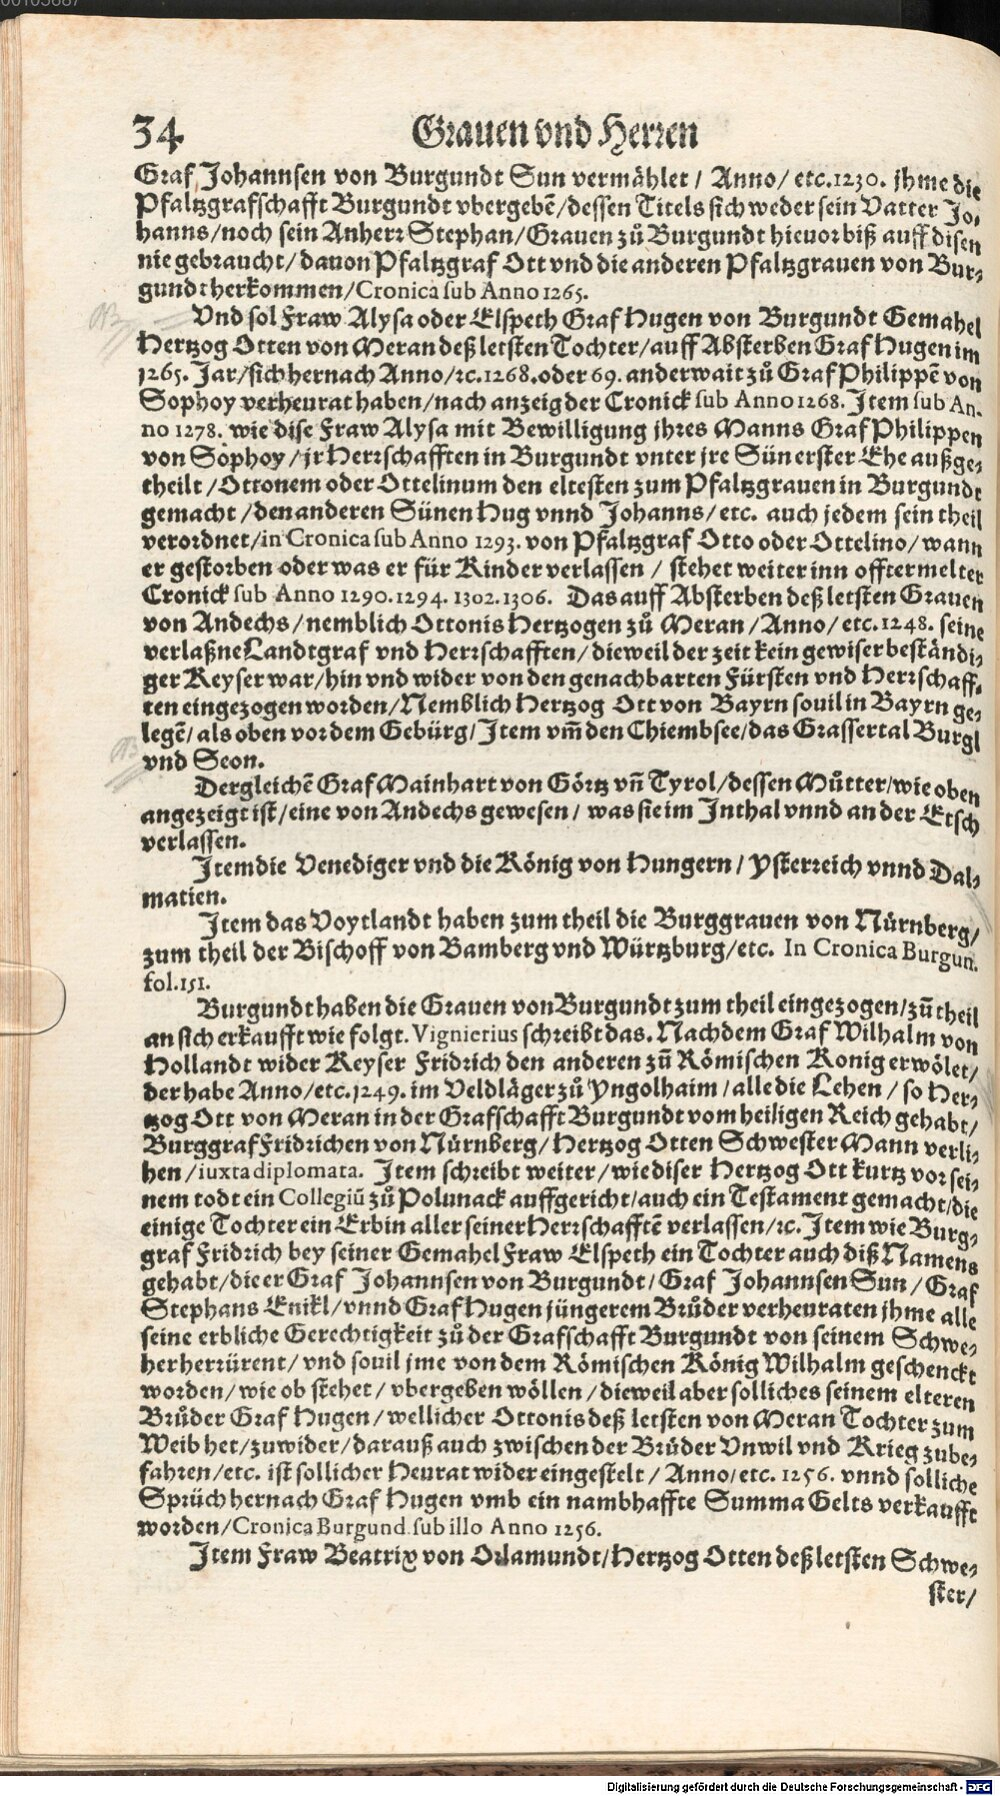 34 Grauen vnd Herren
Graf Johannsen von Burgundt Sun vermählet / Anno / etc. 1230. jhme die
Pfaltzgrafschafft Burgundt vbergebẽ / dessen Titels sich weder sein Vatter Jo⸗
hanns / noch sein Anherr Stephan / Grauen zů Burgundt hieuor biß auff disen
nie gebraucht / dauon Pfaltzgraf Ott vnd die anderen Pfaltzgrauen von Bur⸗
gundt herkommen / Cronica sub Anno 1265.
Vnd sol Fraw Alysa oder Elspeth Graf Hugen von Burgundt Gemahel
Hertzog Otten von Meran deß letsten Tochter / auff Absterben Graf Hugen im
1265. Jar / sich hernach Anno / ꝛc. 1268. oder 69. anderwait zů Graf Philippẽ von
Sophoy verheurat haben / nach anzeig der Cronick sub Anno 1268. Item sub An⸗
no 1278. wie dise Fraw Alysa mit Bewilligung jhres Manns Graf Philippen
von Sophoy / jr Herrschafften in Burgundt vnter jre Sün erster Ehe außge⸗
theilt / Ottonem oder Ottelinum den eltesten zum Pfaltzgrauen in Burgundt
gemacht / den anderen Sünen Hug vnnd Johanns / etc. auch jedem sein theil
verordnet / in Cronica sub Anno 1293. von Pfaltzgraf Otto oder Ottelino / wann
er gestorben oder was er für Kinder verlassen / stehet weiter inn offtermelter
Cronick sub Anno 1290. 1294. 1302. 1306. Das auff Absterben deß letsten Grauen
von Andechs / nemblich Ottonis Hertzogen zů Meran / Anno / etc. 1248. seine
verlaßne Landtgraf vnd Herrschafften / dieweil der zeit kein gewiser beständi⸗
ger Keyser war / hin vnd wider von den genachbarten Fürsten vnd Herrschaff⸗
ten eingezogen worden / Nemblich Hertzog Ott von Bayrn souil in Bayrn ge⸗
legẽ / als oben vor dem Gebürg / Item vm̃ den Chiembsee / das Grassertal Burgl
vnd Seon.
Dergleichẽ Graf Mainhart von Görtz vñ Tyrol / dessen Můtter / wie oben
angezeigt ist / eine von Andechs gewesen / was sie im Inthal vnnd an der Etsch
verlassen.
Item die Venediger vnd die König von Hungern / Ysterreich vnnd Dal⸗
matien.
Item das Voytlandt haben zum theil die Burggrauen von Nürnberg /
zum theil der Bischoff von Bamberg vnd Würtzburg / etc. In Cronica Burgun.
fol. 151.
Burgundt haben die Grauen von Burgundt zum theil eingezogen / zũ theil
an sich erkaufft wie folgt. Vignierius schreibt das. Nachdem Graf Wilhalm von
Hollandt wider Keyser Fridrich den anderen zũ Römischen Konig erwölet /
der habe Anno / etc. 1249. im Veldläger zů Yngolhaim / alle die Lehen / so Her⸗
tzog Ott von Meran in der Grafschafft Burgundt vom heiligen Reich gehabt /
Burggraf Fridrichen von Nürnberg / Hertzog Otten Schwester Mann verli⸗
hen / iuxta diplomata. Item schreibt weiter / wie diser Hertzog Ott kurtz vor sei⸗
nem todt ein Collegiũ zů Polunack auffgericht / auch ein Testament gemacht / die
einige Tochter ein Erbin aller seiner Herrschafftẽ verlassen / ꝛc. Item wie Burg⸗
graf Fridrich bey seiner Gemahel Fraw Elspeth ein Tochter auch diß Namens
gehabt / die er Graf Johannsen von Burgundt / Graf Johannsen Sun / Graf
Stephans Enikl / vnnd Graf Hugen jüngerem Brůder verheuraten jhme alle
seine erbliche Gerechtigkeit zů der Grafschafft Burgundt von seinem Schwe⸗
her herrürent / vnd souil jme von dem Römischen König Wilhalm geschenckt
worden / wie ob stehet / vbergeben wöllen / dieweil aber solliches seinem elteren
Brůder Graf Hugen / wellicher Ottonis deß letsten von Meran Tochter zum
Weib het / zuwider / darauß auch zwischen der Brüder Vnwil vnd Krieg zube⸗
fahren / etc. ist sollicher Heurat wider eingestelt / Anno / etc. 1256. vnnd solliche
Sprüch hernach Graf Hugen vmb ein nambhaffte Summa Gelts verkaufft
worden / Cronica Burgund. sub illo Anno 1256.
Item Fraw Beatrix von Orlamundt / Hertzog Otten deß letsten Schwe⸗
ster /
Digitalisierung gefördert durch die Deutsche Forschungsgemeinschaft - DFG